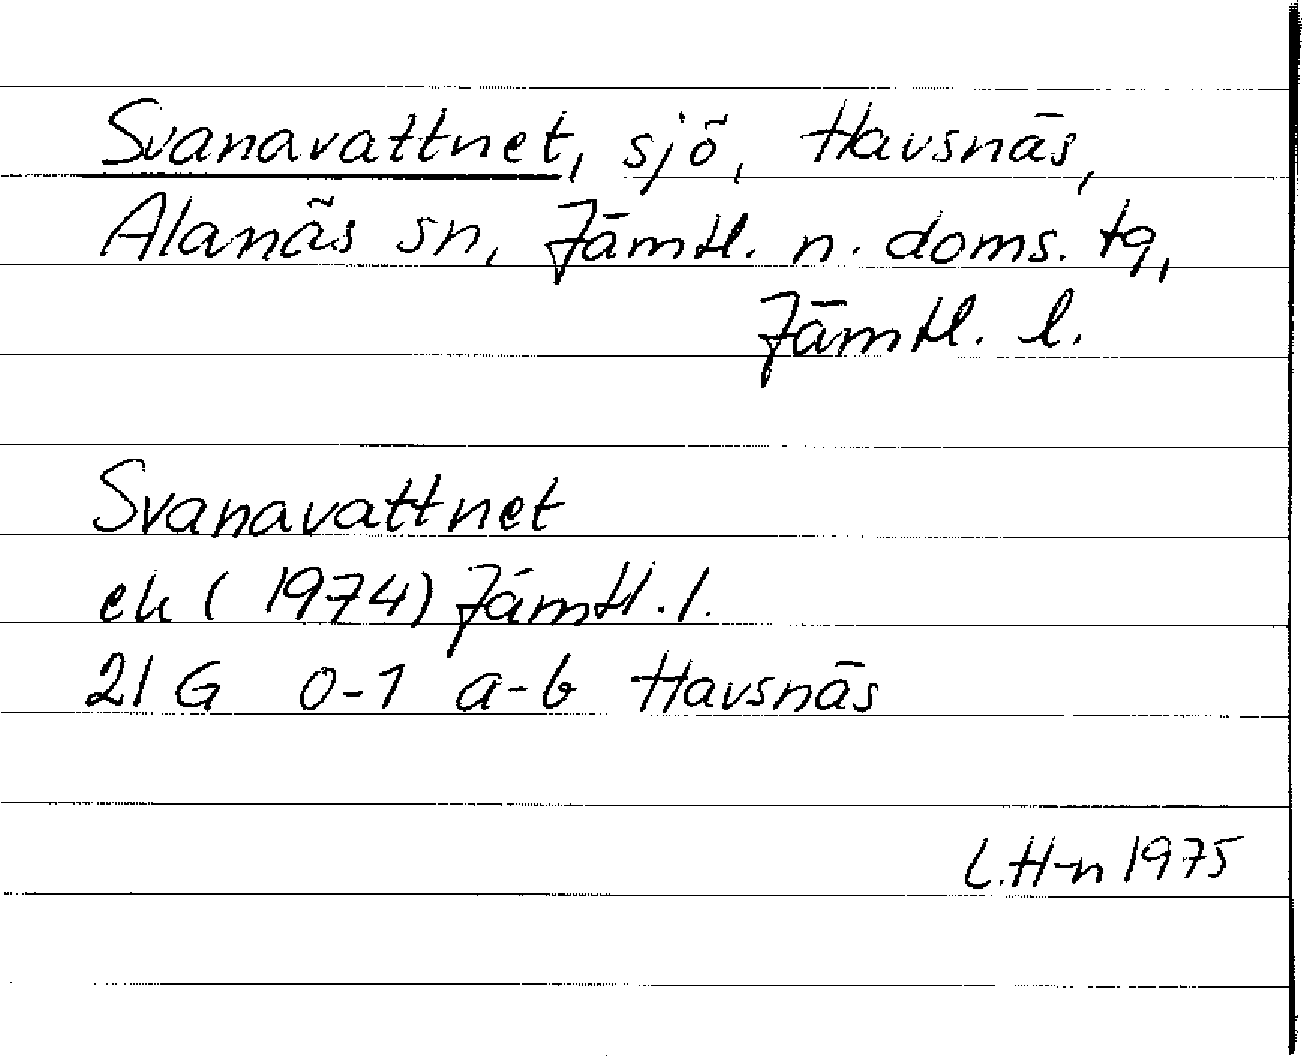 Svanavattnet, sjö, Havsnäs,
Alanäs sn, Jämtl. n. doms. tg,
Jämtl. l.
Svanavattnet
ek (1974) Jämtl. l.
21 G 0-1 a-b Havsnäs
L.H-n 1975